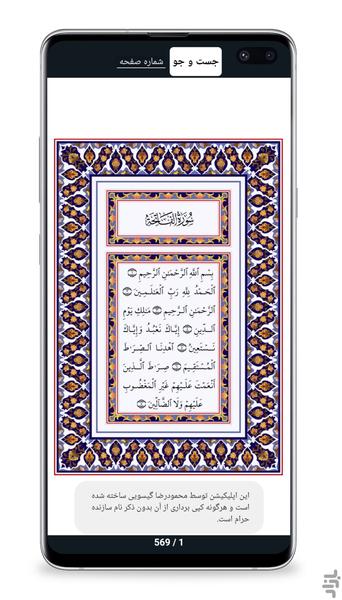 جست و جو
شماره صفحه
سُورَةُ الفَاتِحَةِ
بِسْمِ اللَّهِ الرَّحْمَٰنِ الرَّحِيمِ ۝١
الْحَمْدُ لِلَّهِ رَبِّ الْعَالَمِينَ ۝٢
الرَّحْمَٰنِ الرَّحِيمِ ۝٣ مَالِكِ يَوْمِ
الدِّينِ ۝٤ إِيَّاكَ نَعْبُدُ وَإِيَّاكَ
نَسْتَعِينُ ۝٥ اهْدِنَا الصِّرَاطَ
الْمُسْتَقِيمَ ۝٦ صِرَاطَ الَّذِينَ
أَنْعَمْتَ عَلَيْهِمْ غَيْرِ الْمَغْضُوبِ
عَلَيْهِمْ وَلَا الضَّالِّينَ ۝٧
این اپلیکیشن توسط محمودرضا گیسویی ساخته شده
است و هرگونه کپی برداری از آن بدون ذکر نام سازنده
حرام است.
569 / 1
بازار